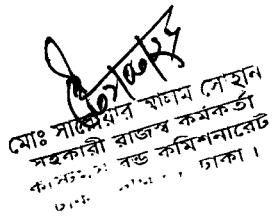 মোঃ সারোয়ার আলম সোহান
সহকারী রাজস্ব কর্মকর্তা
কাস্টমস বন্ড কমিশনারেট
ঢাকা।